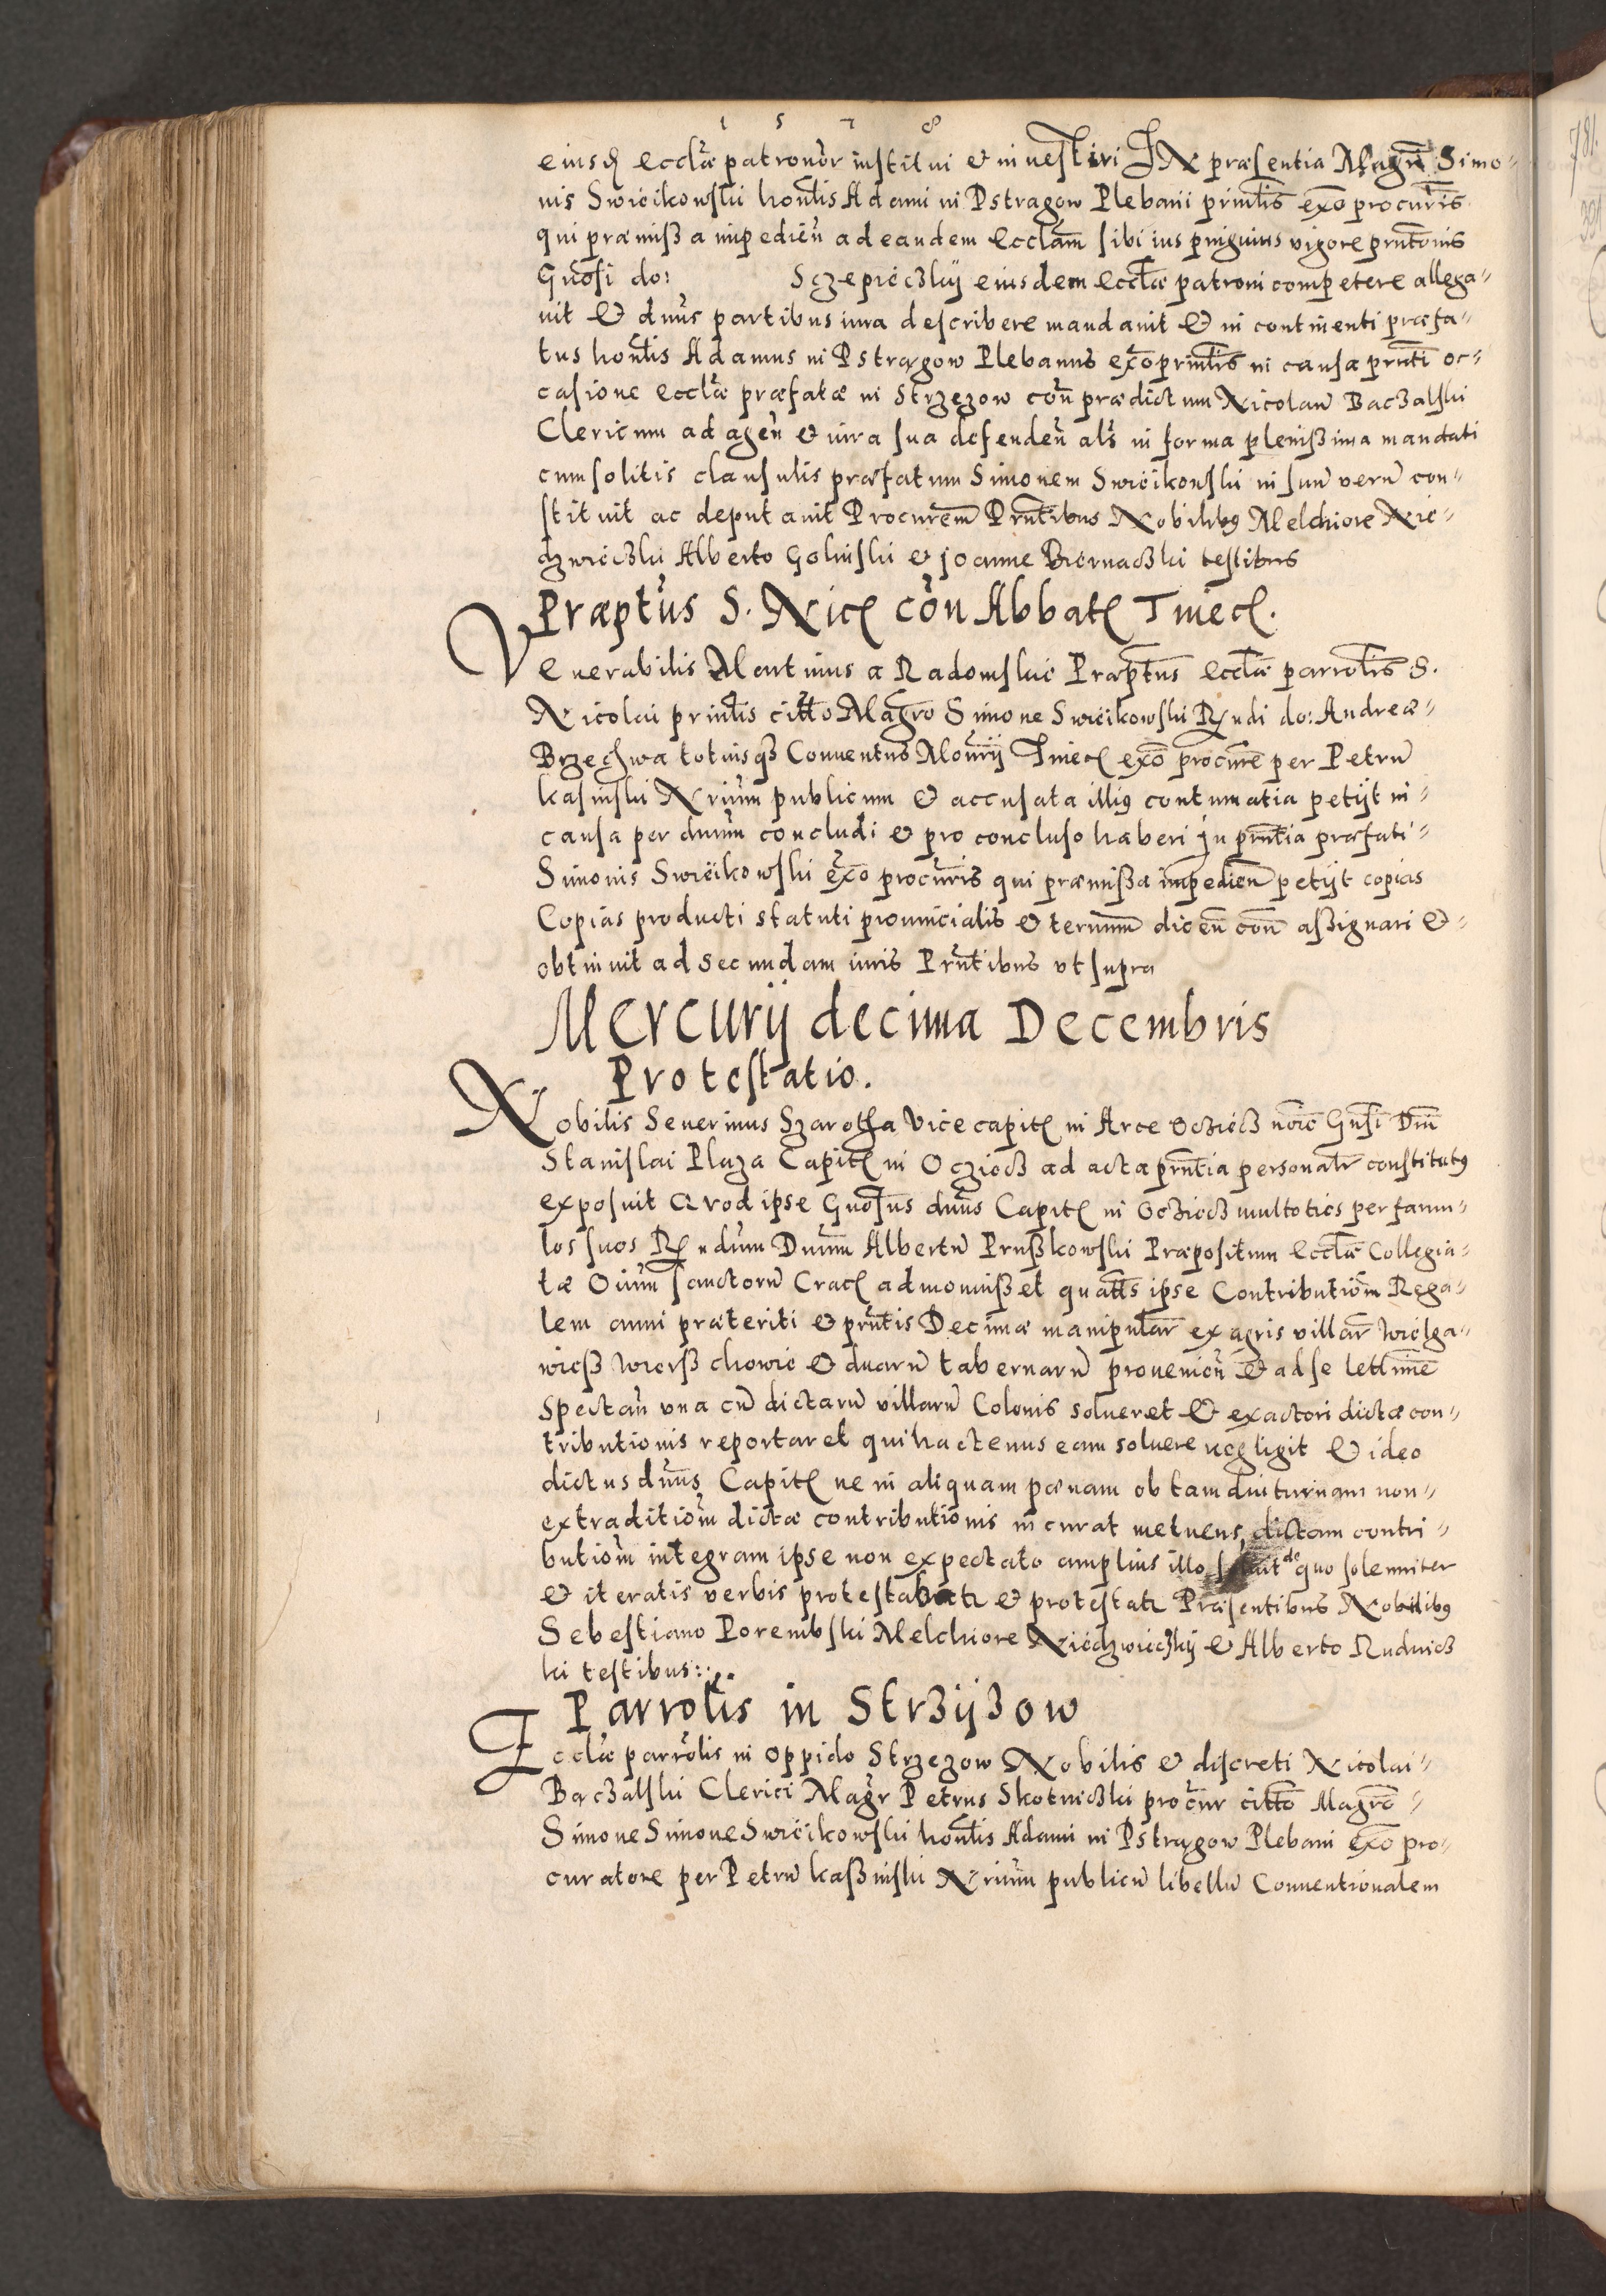 1 5 7 8
eiusd ecclae patronor institui et investiri IN praesentia Magri Simo-
nis Swieikowski honlis Adami in Pstragow Plebani prinlis exo procuris
qui praemissa impedien ad eandem Ecclam sibi ius pinguius vigore prntonis
Gnosi do: Sczepieczkij eiusdem ecclae patroni competere allega-
vit Et dnus partibus iura describere mandavit Et in continenti praefa-
tus honlis Adamus in Pstragow Plebanus exo prinlis in causa prnti oc-
casione ecclae praefatae in Strzezow con praedictum Nicolaum Baczalski
Clericum ad agen et iura sua defenden als in forma plenissima mandati
cum solitis clausulis praefatum Simonem Swieikowski in suu veru con-
stituit ac deputavit Procurem Prntibus Nobilibus Melchiore Nie-
dzwieczki Alberto Golinski et Joanne Biernaczki testibus
Praeptus S. Nic con Abbat Tinec.
Venerabilis Martinus a Radomsko Praeptus Ecclae parrolis S.
Nicolai prinlis citto Magro Simone Swieikowski Rndi do: Andreae
Brzechwa totiusqs Conventus Monrij Tinec exo procure per Petru
Kasinski Nrium publicum et accusata illius contumatia petijt in
causa per dnum concludi et pro concluso haberi In prntia praefati
Simonis Swieikowski exo procuris qui praemissa impedien petijt copias
Copias producti statuti provincialis et terminum dicen con assignari Et
obtinuit ad secundam iuris Prntibus ut supra
Mercurij decima Decembris
Protestatio.
Nobilis Severinus Szarotha Vicecapit in Arce Oczieß noie Gnsi Dni
Stanislai Plaza Capit in Oczieß ad acta prntia personalr constitutus
exposuit Quod ipse Gnosus dnus Capit in Oczieß multoties per famu-
los suos Rndum Dnum Albertu Prußkowski Praepositum Ecclae Collegia-
tae Oium sanctoru Crac admonuisset quatts ipse Contributiom Rega-
lem anni praeteriti et prntis Decimae manipular ex agris villar Wielga-
wieß Wierßchowie Et duaru tabernaru provenien Et ad se lettime
Spectan una cu dictaru villaru Colonis solveret Et exactori dictae con-
tributionis reportaret qui hactenus eam solvere negligit Et ideo
dictus dnus Capit ne in aliquam paenam ob tam diuturnam non
extraditiom dictae contributionis incurat metuens, dictam contri-
butiom integram ipse non expectato amplius illo de quo solenniter
et iteratis verbis protestabatr et protestatr Praesentibus Nobilibus
Sebestiano Porembski Melchiore Niedzwieczkij et Alberto Rudnicz
ki testibus:.
Parrolis in Strzijzow
Ecclae parrolis in oppido Strzezow Nobilis et discreti Nicolai
Baczalski Clerici Magr Petrus Skotniczki procur citto Magro
Simone Simone Swieikowski honlis Adami in Pstragow Plebani exo pro-
curatore per Petru kaßinski Nrium publicu libellu Conventionalem